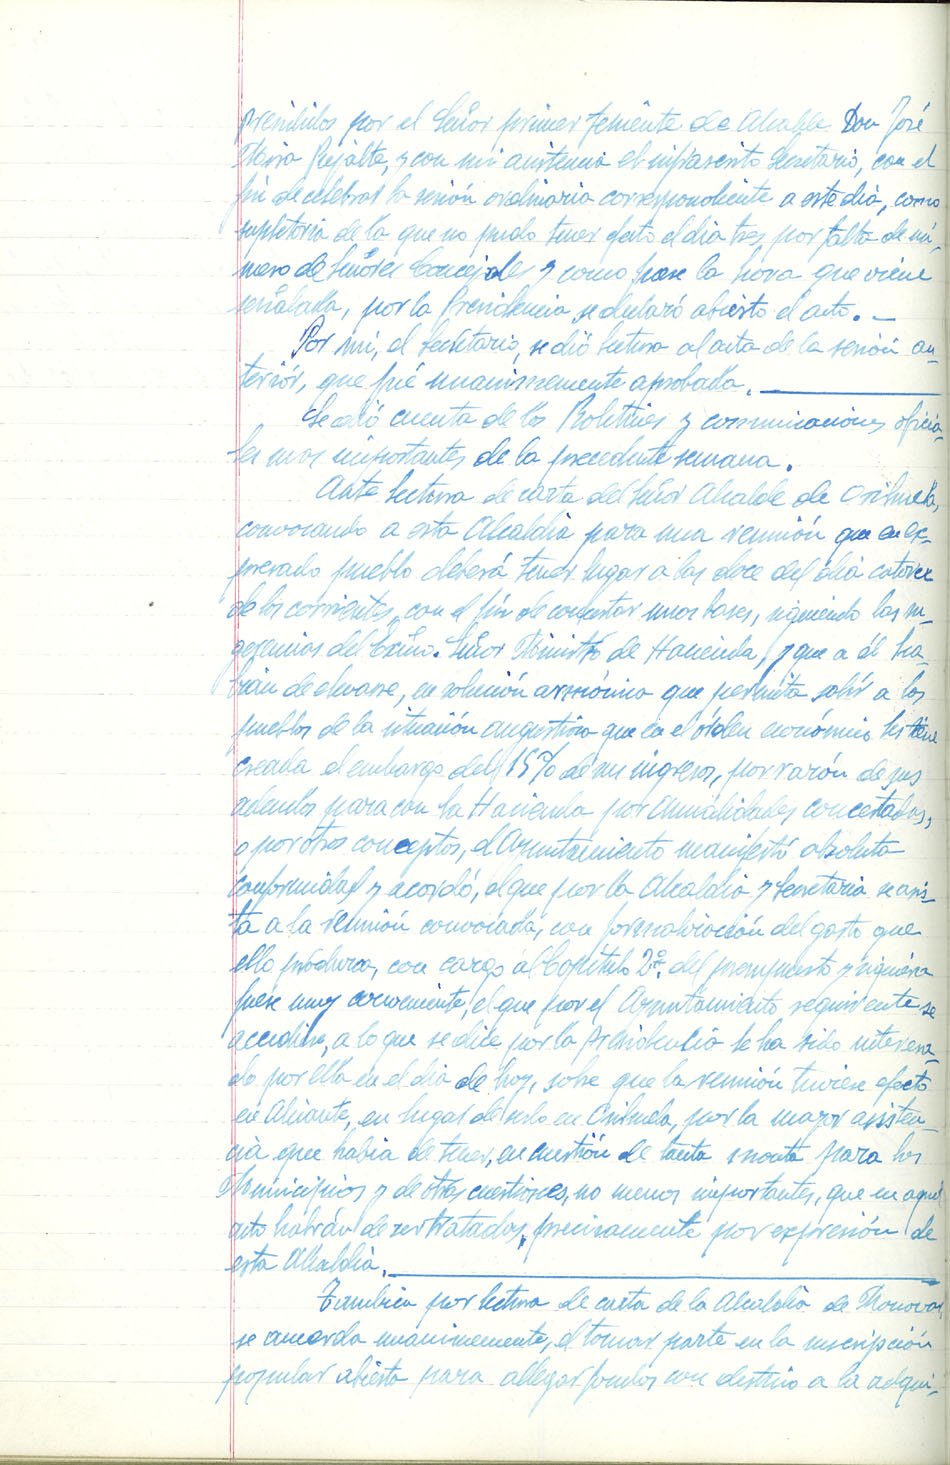 presididos por el Señor primer Teniente de Alcalde Don José
María y con mi asistencia el infrascrito Secretario, con el
fin de celebrar la sesión ordinaria correspondiente a este día, como
supletoria de la que no pudo tener efecto el día tres, por falta de nú-
mero de Señores Concejales y como fuese la hora que viene
señalada, por la Presidencia, se declaró abierto el acto. —
Por mí, el Secretario, se dió lectura al acta de la sesión an-
terior, que fué unanimemente aprobada. —
Se dió cuenta de los Boletines y comunicaciones oficia-
les mas importantes de la precedente semana.
Ante lectura de carta del Señor Alcalde de Orihuela,
convocando a esta Alcaldía para una reunión que en ex-
presado pueblo deberá tener lugar a las doce del día catorce
de los corrientes, con el fin de concertar unas bases, siguiendo las su-
gerencias del Excmo. Señor Ministro de Hacienda, y que a él ha-
brán de elevarse, en solución armónica que permita salir a los
pueblos de la situación angustiosa que en el órden económico les tiene
creada el embargo del 15% de sus ingresos, por razón de sus
adeudos para con la Hacienda por anualidades concertadas,
o por otros conceptos, el Ayuntamiento manifestó absoluta
conformidad y acordó, el que por la Alcaldía y Secretaria se asis-
ta a la reunión convocada, con formalización del gasto que
ello produzca, con cargo al Capítulo 2º. del presupuesto y
fuese muy conveniente, el que por el Ayuntamiento requirente se
accediese, a lo que se dice por la Presidencia le ha sido interesa-
do por ella en el día de hoy, sobre que la reunión tuviese efecto
en Alicante, en lugar de serlo en Orihuela, por la mayor asisten-
cia que habia de tener, en cuestión de tanta monta para los
Municipios y de otras cuestiones, no menos importantes, que en aquel
acto habrán de ser tratadas, precisamente por expresión de
esta Alcaldía. —
Tambien por lectura de carta de la Alcaldía de Monovar,
se acuerda unanimemente, el tomar parte en la suscripción
popular abierta para allegar fondos con destino a la adqui-